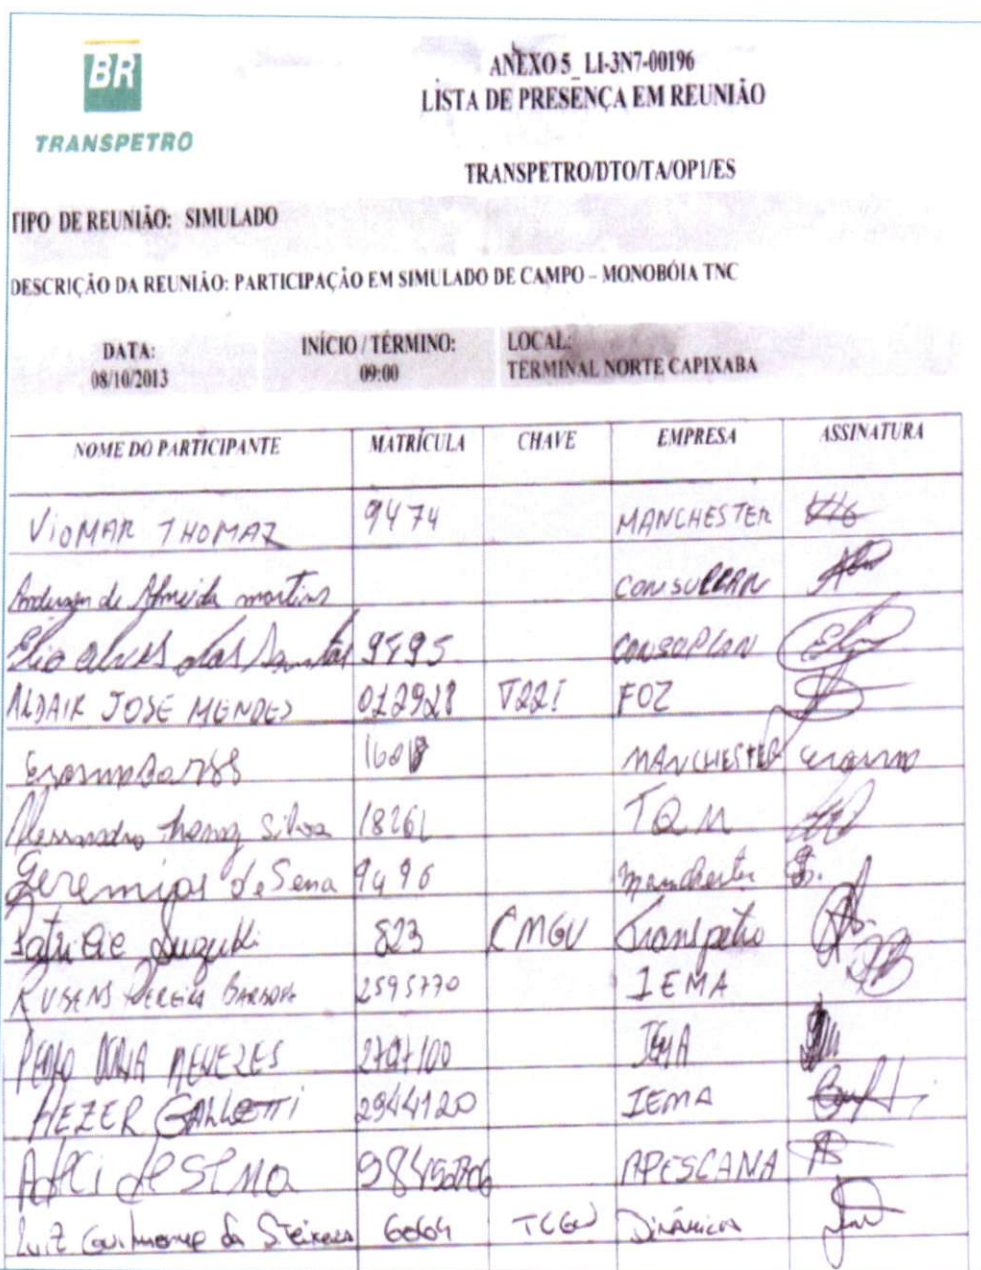 BR
TRANSPETRO
ANEXO 5_LI-3N7-00196
LISTA DE PRESENÇA EM REUNIÃO
TRANSPETRO/DTO/TA/OP1/ES
TIPO DE REUNIÃO: SIMULADO
DESCRIÇÃO DA REUNIÃO: PARTICIPAÇÃO EM SIMULADO DE CAMPO – MONOBÓIA TNC
DATA: INÍCIO / TÉRMINO: LOCAL:
08/10/2013 09:00 TERMINAL NORTE CAPIXABA
NOME DO PARTICIPANTE MATRÍCULA CHAVE EMPRESA ASSINATURA
VIOMAR THOMAZ 9474 MANCHESTER
Anderson de Almeida martins CONSULPLAN
Elio alves dos Santos 9495 CONSOPLAN
ALDAIR JOSE MENDES 012928 FOZ
MANCHESTER
Alessandro Silva 18261 TQM
Jeremias de Sena 9496 manchester
Patricie Suzuki 823 CMGV Transpetro
RUBENS PEREIRA BARBOSA 2595770 IEMA
PEDRO MENEZES IEMA
HEZER GALLETTI 2944120 IEMA
APESCANA
Luiz Guilherme da S Teixeira 6664 TCGW DINÂMICA